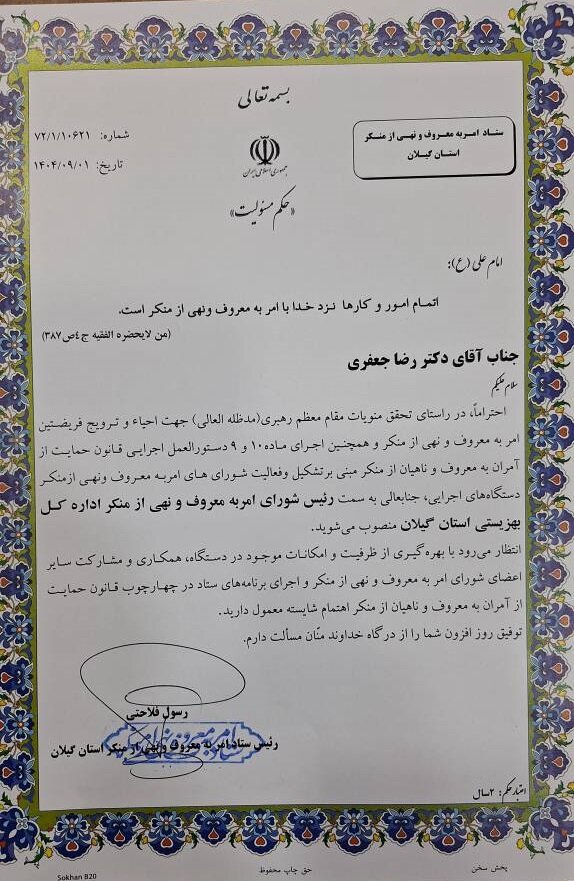 بسمه تعالی
ستاد امر به معروف و نهی از منکر
استان گیلان
شماره: ۷۲/۱/۱۰۶۲۱
تاریخ: ۱۴۰۴/۰۹/۰۱
جمهوری اسلامی ایران
«حکم مسئولیت»
امام علی (ع):
اتمام امور و کارها نزد خدا با امر به معروف ونهی از منکر است.
(من لایحضره الفقیه ج٤ص۳۸۷)
جناب آقای دکتر رضا جعفری
سلام علیکم
احتراماً، در راستای تحقق منویات مقام معظم رهبری(مدظله العالی) جهت احیاء و ترویج فریضتین
امر به معروف و نهی از منکر و همچنین اجرای ماده۱۰ و ۹ دستورالعمل اجرایی قانون حمایت از
آمران به معروف و ناهیان از منکر مبنی برتشکیل وفعالیت شورای های امربه معروف ونهی ازمنکر
دستگاه‌های اجرایی، جنابعالی به سمت رئیس شورای امربه معروف و نهی از منکر اداره کل
بهزیستی استان گیلان منصوب می‌شوید.
انتظار می‌رود با بهره‌گیری از ظرفیت و امکانات موجود در دستگاه، همکاری و مشارکت سایر
اعضای شورای امر به معروف و نهی از منکر و اجرای برنامه‌های ستاد در چهارچوب قانون حمایت
از آمران به معروف و ناهیان از منکر اهتمام شایسته معمول دارید.
توفیق روز افزون شما را از درگاه خداوند منّان مسألت دارم.
رسول فلاحتی
رئیس ستاد امر به معروف و نهی از منکر استان گیلان
اعتبار حکم: ۲سال
پخش سخن
حق چاپ محفوظ
Sokhan B20